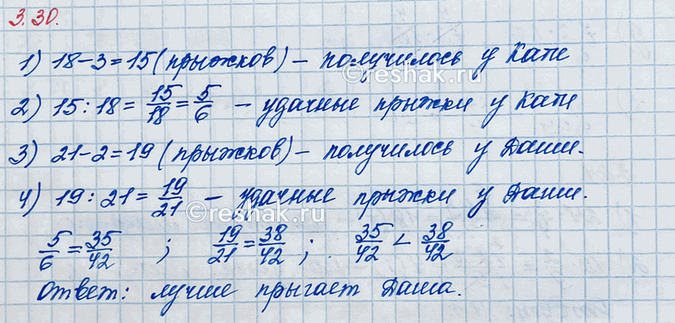 3.30.
1) 18-3=15 (прыжков) - получилось у Кати
2) 15:18 = 15/18 = 5/6 - удачные прыжки у Кати
3) 21-2=19 (прыжков) - получилось у Даши.
4) 19:21 = 19/21 - удачные прыжки у Даши.
5/6 = 35/42 ; 19/21 = 38/42 ; 35/42 < 38/42
Ответ: лучше прыгает Даша.
©reshak.ru
©reshak.ru